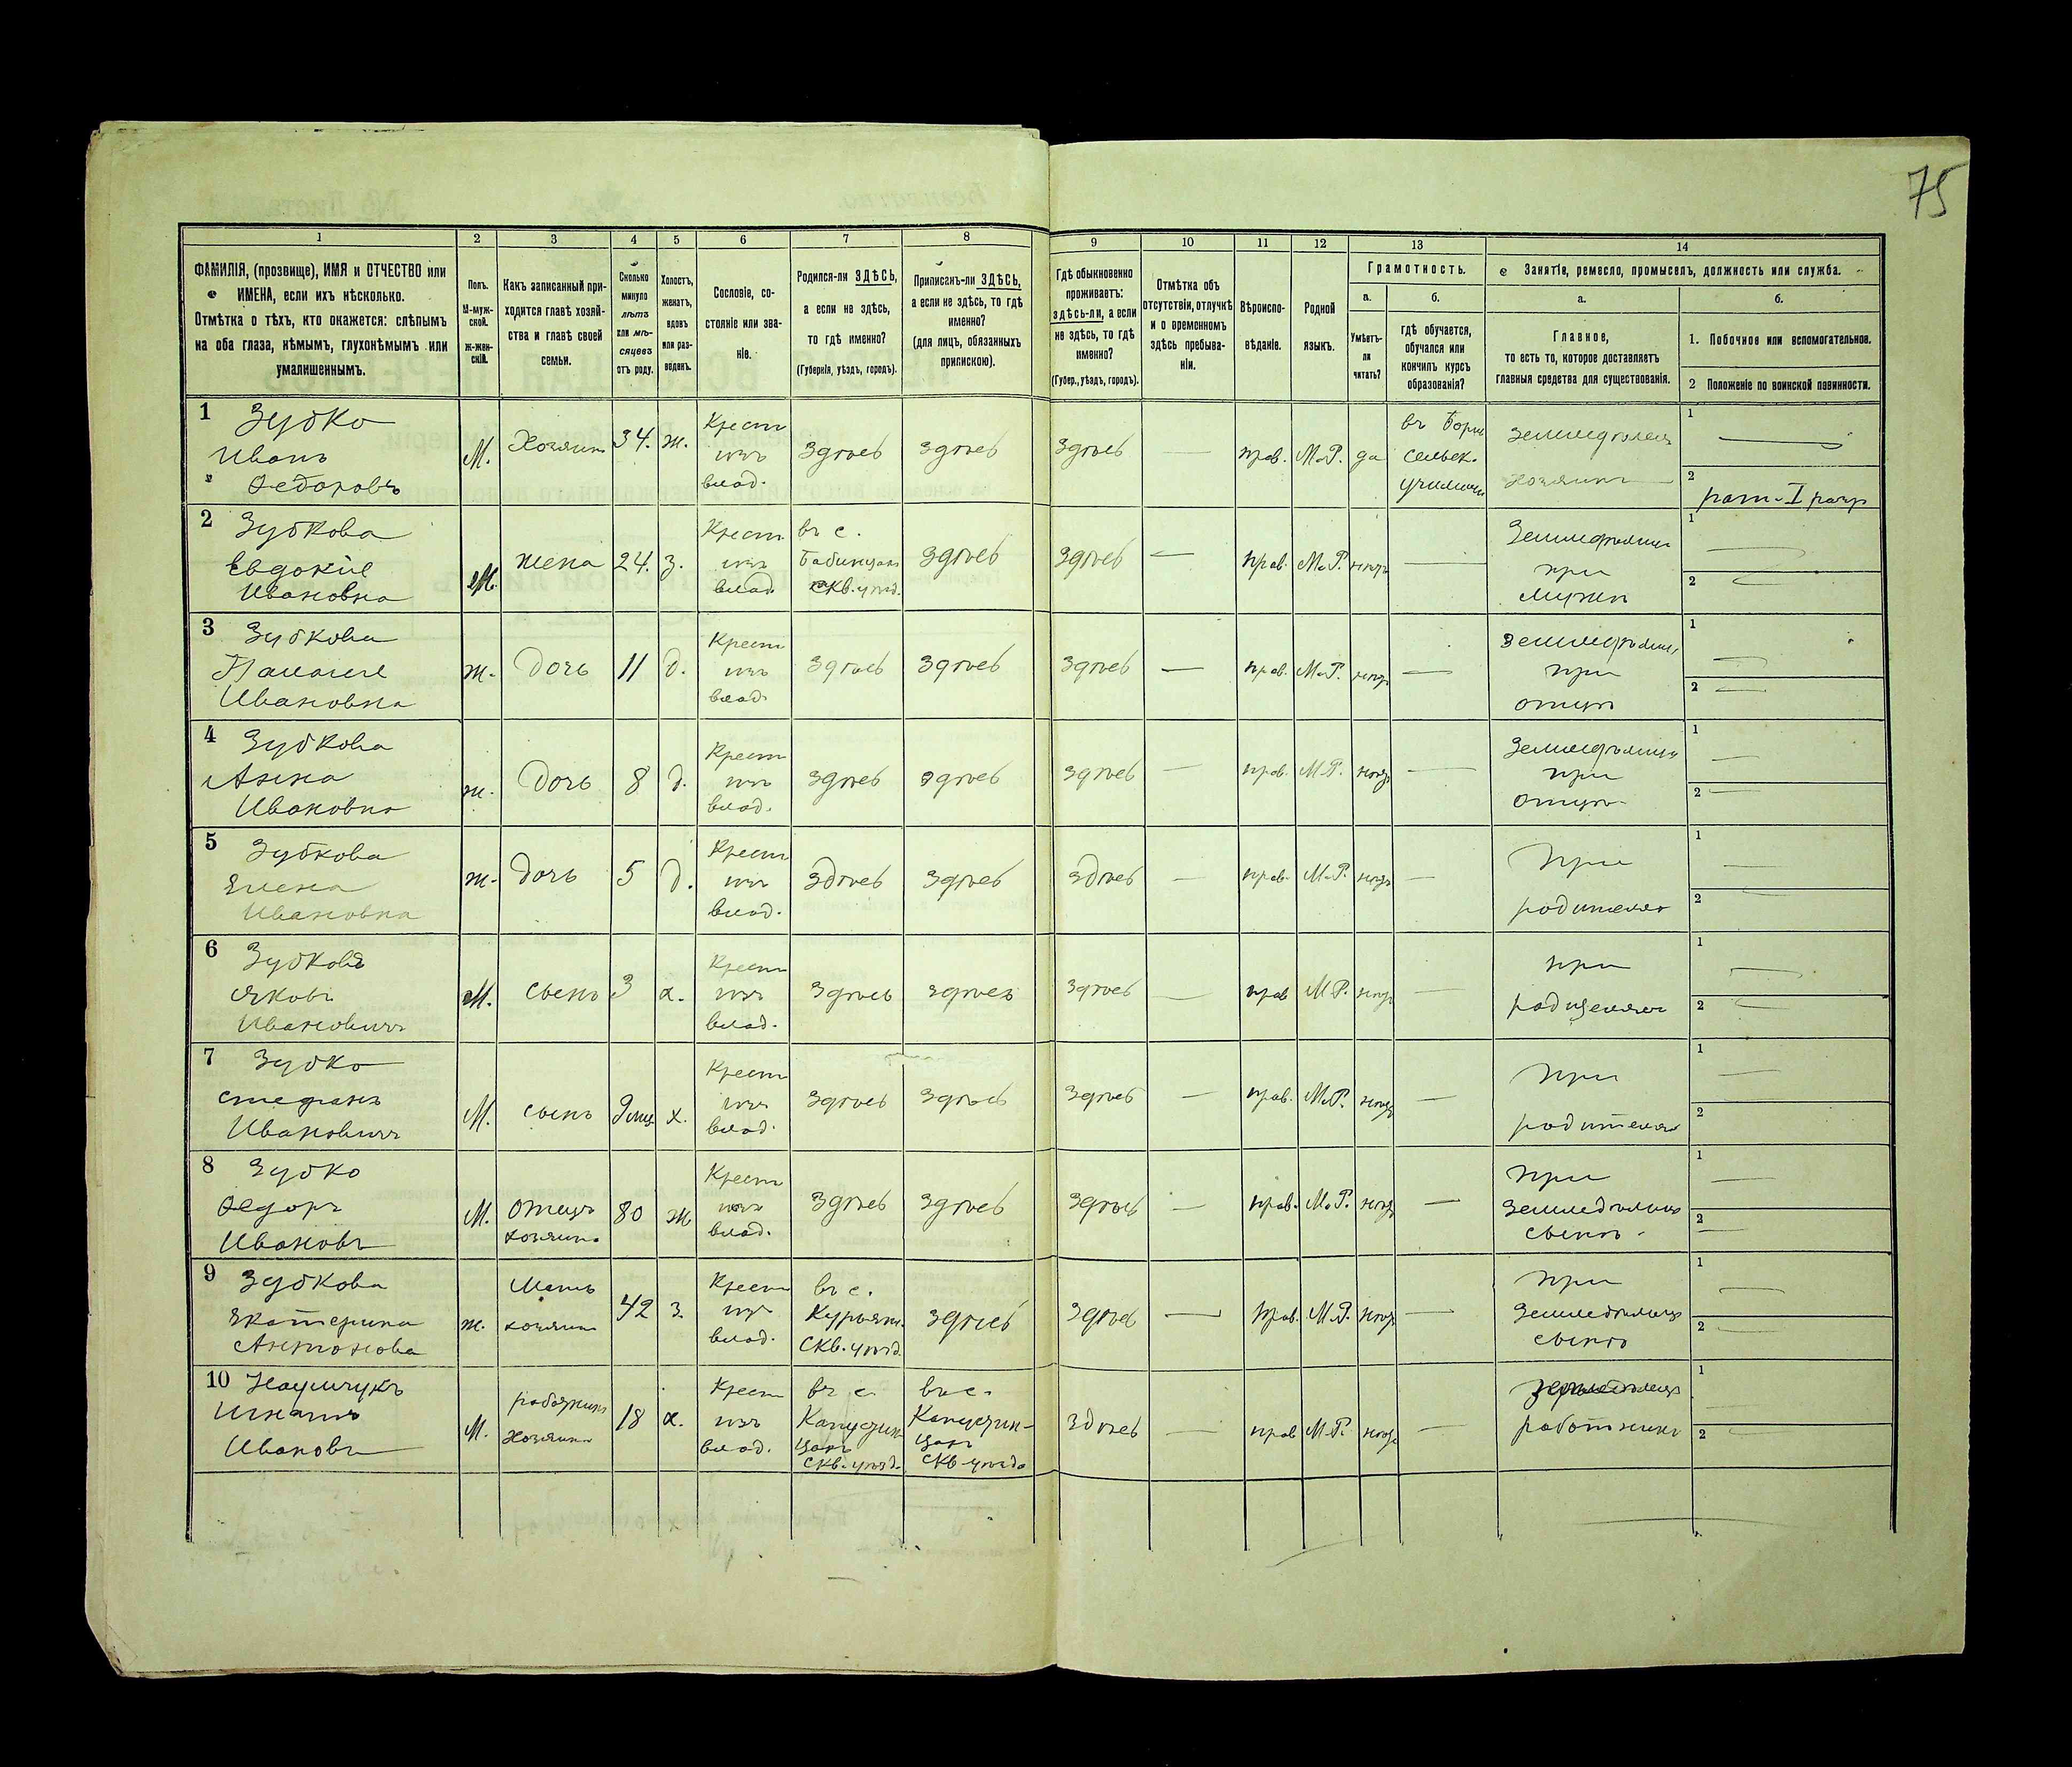 75
1 2 3 4 5 6 7 8 9 10 11 12 13 14
ФАМИЛІЯ, (прозвище), ИМЯ и ОТЧЕСТВО или
ИМЕНА, если ихъ нѣсколько.
Отмѣтка о тѣхъ, кто окажется: слѣпымъ
на оба глаза, нѣмымъ, глухонѣмымъ или
умалишеннымъ.
Полъ.
М-муж-
ской.
Ж-жен-
скій.
Какъ записанный при-
ходится главѣ хозяй-
ства и главѣ своей
семьи.
Сколько
минуло
лѣтъ
или мѣ-
сяцевъ
отъ роду.
Холостъ,
женатъ,
вдовъ
или раз-
веденъ.
Сословіе, со-
стояніе или зва-
ніе.
Родился-ли ЗДѢСЬ,
а если не здѣсь,
то гдѣ именно?
(Губернія, уѣздъ, городъ).
Приписанъ-ли ЗДѢСЬ,
а если не здѣсь, то гдѣ
именно?
(для лицъ, обязанныхъ
припискою).
Гдѣ обыкновенно
проживаетъ:
здѣсь-ли, а если
не здѣсь, то гдѣ
именно?
(Губер., уѣздъ, городъ).
Отмѣтка объ
отсутствіи, отлучкѣ
и о временномъ
здѣсь пребыва-
ніи.
Вѣроиспо-
вѣданіе.
Родной
языкъ.
Грамотность.
а.
Умѣетъ-
ли
читать?
б.
гдѣ обучается,
обучался или
кончилъ курсъ
образованія?
Занятіе, ремесло, промыселъ, должность или служба.
а.
Главное,
то есть то, которое доставляетъ
главныя средства для существованія.
б.
1. Побочное или вспомогательное.
2 Положеніе по воинской повинности.
1 Зубко
Иванъ
Федоровъ
М. Хозяинъ 34. ж.
Крест
изъ
влад.
здѣсь здѣсь здѣсь — прав. М.Р. да
сельск.
училищѣ
земледѣлецъ
хозяинъ
1 —
2 рат. I разр
2 Зубкова
Евдокія
Ивановна
Ж. жена 24. з.
Крест
изъ
влад
въ с.
СКВ. уѣзд.
здѣсь здѣсь — прав. М.Р. нѣтъ —
Земледѣлица
при
мужѣ
1 —
2 —
3 Зубкова
Ивановна
ж. дочь 11 д.
Крест
изъ
влад.
здѣсь здѣсь здѣсь — прав. М.Р. нѣтъ —
земледѣлица
при
отцѣ
1 —
2 —
4 Зубкова
Анна
Ивановна
ж. Дочь 8 д.
Крест
изъ
влад.
здѣсь здѣсь здѣсь — прав. М.Р. нѣтъ —
Земледѣлица
при
отцѣ
1 —
2 —
5 Зубкова
Елена
Ивановна
ж. дочь 5 д.
Крест
изъ
влад.
здѣсь здѣсь здѣсь — прав. М.Р. нѣтъ —
При
родителяхъ
1 —
2 —
6
Яковъ
Ивановичъ
М. сынъ 3 х.
Крест
изъ
влад.
здѣсь здѣсь здѣсь — прав М.Р. нѣтъ —
при
родителяхъ
1 —
2 —
7 Зубко
Стефанъ
Ивановичъ
М. сынъ 9 мѣс. х.
Крест
изъ
влад.
здѣсь здѣсь здѣсь — прав. М.Р. нѣтъ —
при
родителяхъ
1 —
2
8 Зубко
Федоръ
Ивановъ
М. отецъ
хозяина
80 ж
Крест
изъ
влад.
здѣсь здѣсь здѣсь — прав. М.Р. нѣтъ —
при
земледѣльцѣ
сынѣ
1 —
2 —
9 Зубкова
Екатерина
Антонова
ж. Мать
хозяина
42 з.
Крест
изъ
влад.
въ с.
СКВ. уѣзд.
здѣсь здѣсь — прав. М.Р. нѣтъ —
при
Земледѣльцѣ
сынѣ
1 —
2 —
10 Наумчукъ
Игнатъ
Ивановъ
М. работникъ
хозяина
18 х.
Крест
изъ
влад.
въ с.
Капустин-
цахъ
СКВ. уѣзд.
въ с.
Капустин-
цахъ
СКВ. уѣзд.
здѣсь — прав М.Р. нѣтъ —
работникъ
1 —
2 —